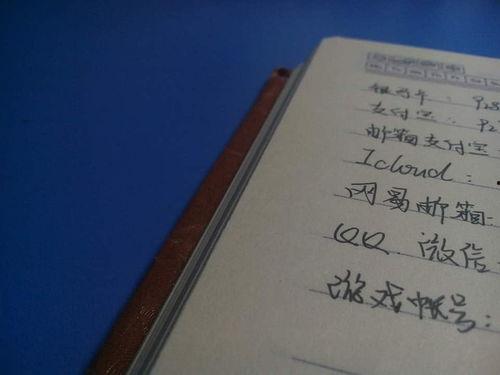 银行卡: 928
支付宝: 92
邮箱支付宝
Icloud:
网易邮箱:
QQ 微信
游戏帐号: